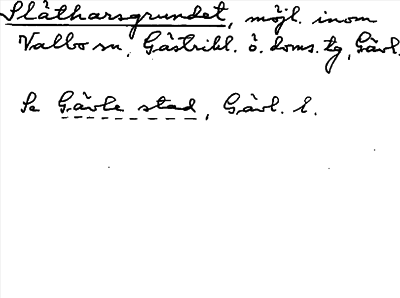 Slåtharsgrundet, möjl. inom
Valbo sn, Gästrikl. ö. doms. tg, Gävl.
Se Gävle stad, Gävl. l.